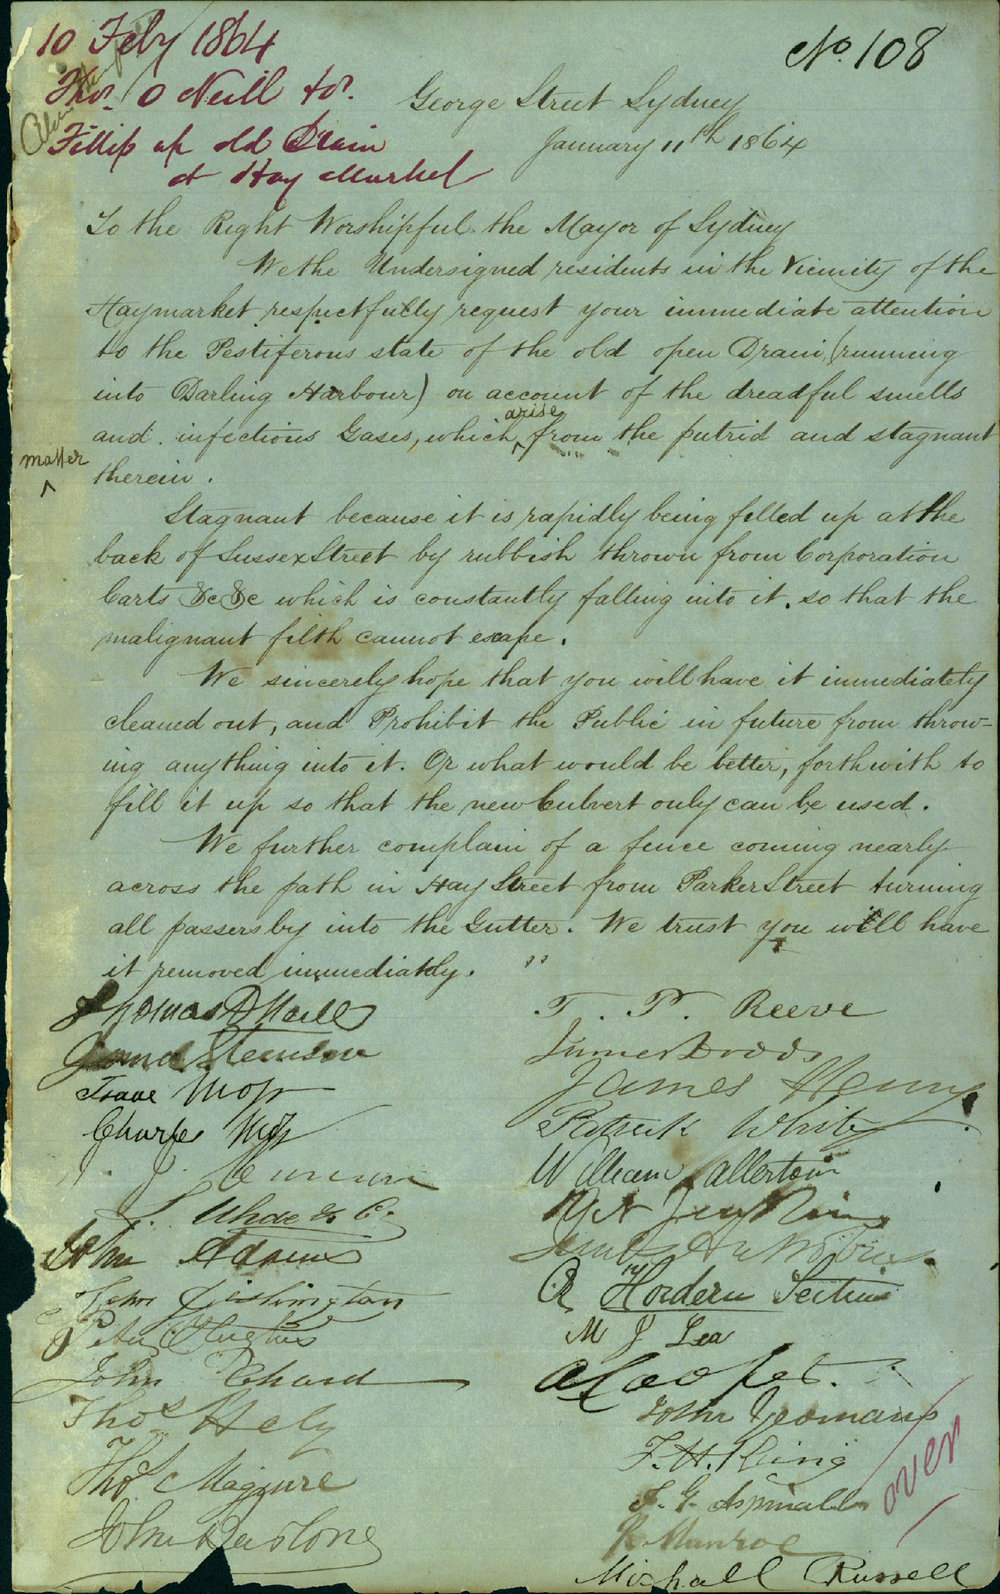 10 Feby 1864
Thos. O Neill &c.
Fillig up old Drain
at Hay Market
No. 108
George Street Sydney
January 11th 1864
To the Right Worshipful the Mayor of Sydney
We the Undersigned residents in the Vicinity of the
Haymarket respectfully request your immediate attention
to the Pestiferous state of the old open Drain (running
into Darling Harbour) on account of the dreadful smells
and infectious Gases, which arise from the putrid and stagnant
matter therein.
Stagnant because it is rapidly being filled up at the
back of Sussex Street by rubbish thrown from Corporation
Carts &c &c which is constantly falling into it. so that the
malignant filth cannot escape.
We sincerely hope that you will have it immediately
cleaned out, and Prohibit the Public in future from throw-
ing anything into it. Or what would be better, forthwith to
fill it up so that the new Culvert only can be used.
We further complain of a fence coming nearly
across the path in Hay Street from Parker Street turning
all passersby into the Gutter. We trust you will have
it removed immediately.
Thomas O Neill
Isaac Moss
Charles Moss
John Adams
Peter Hughes
John Chard
Thos Hely
Thos Magguire
John
T. P. Reeve
James Dodds
James Henry
Patrick White
William Allerton
Hordern
M J Lea
A Cooper.
John Yeomans
F. H. King
J. G. Aspinall
R Munroe
Michall Russell
over